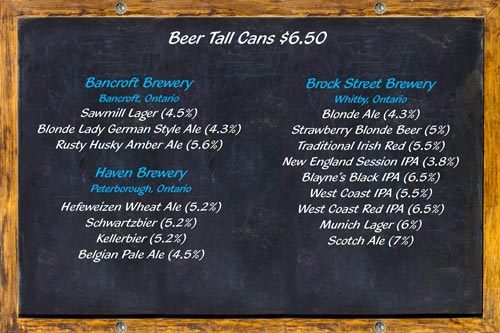 Beer Tall Cans $6.50
Bancroft Brewery
Bancroft, Ontario
Sawmill Lager (4.5%)
Blonde Lady German Style Ale (4.3%)
Rusty Husky Amber Ale (5.6%)
Haven Brewery
Peterborough, Ontario
Hefeweizen Wheat Ale (5.2%)
Schwartzbier (5.2%)
Kellerbier (5.2%)
Belgian Pale Ale (4.5%)
Brock Street Brewery
Whitby, Ontario
Blonde Ale (4.3%)
Strawberry Blonde Beer (5%)
Traditional Irish Red (5.5%)
New England Session IPA (3.8%)
Blayne's Black IPA (6.5%)
West Coast IPA (5.5%)
West Coast Red IPA (6.5%)
Munich Lager (6%)
Scotch Ale (7%)